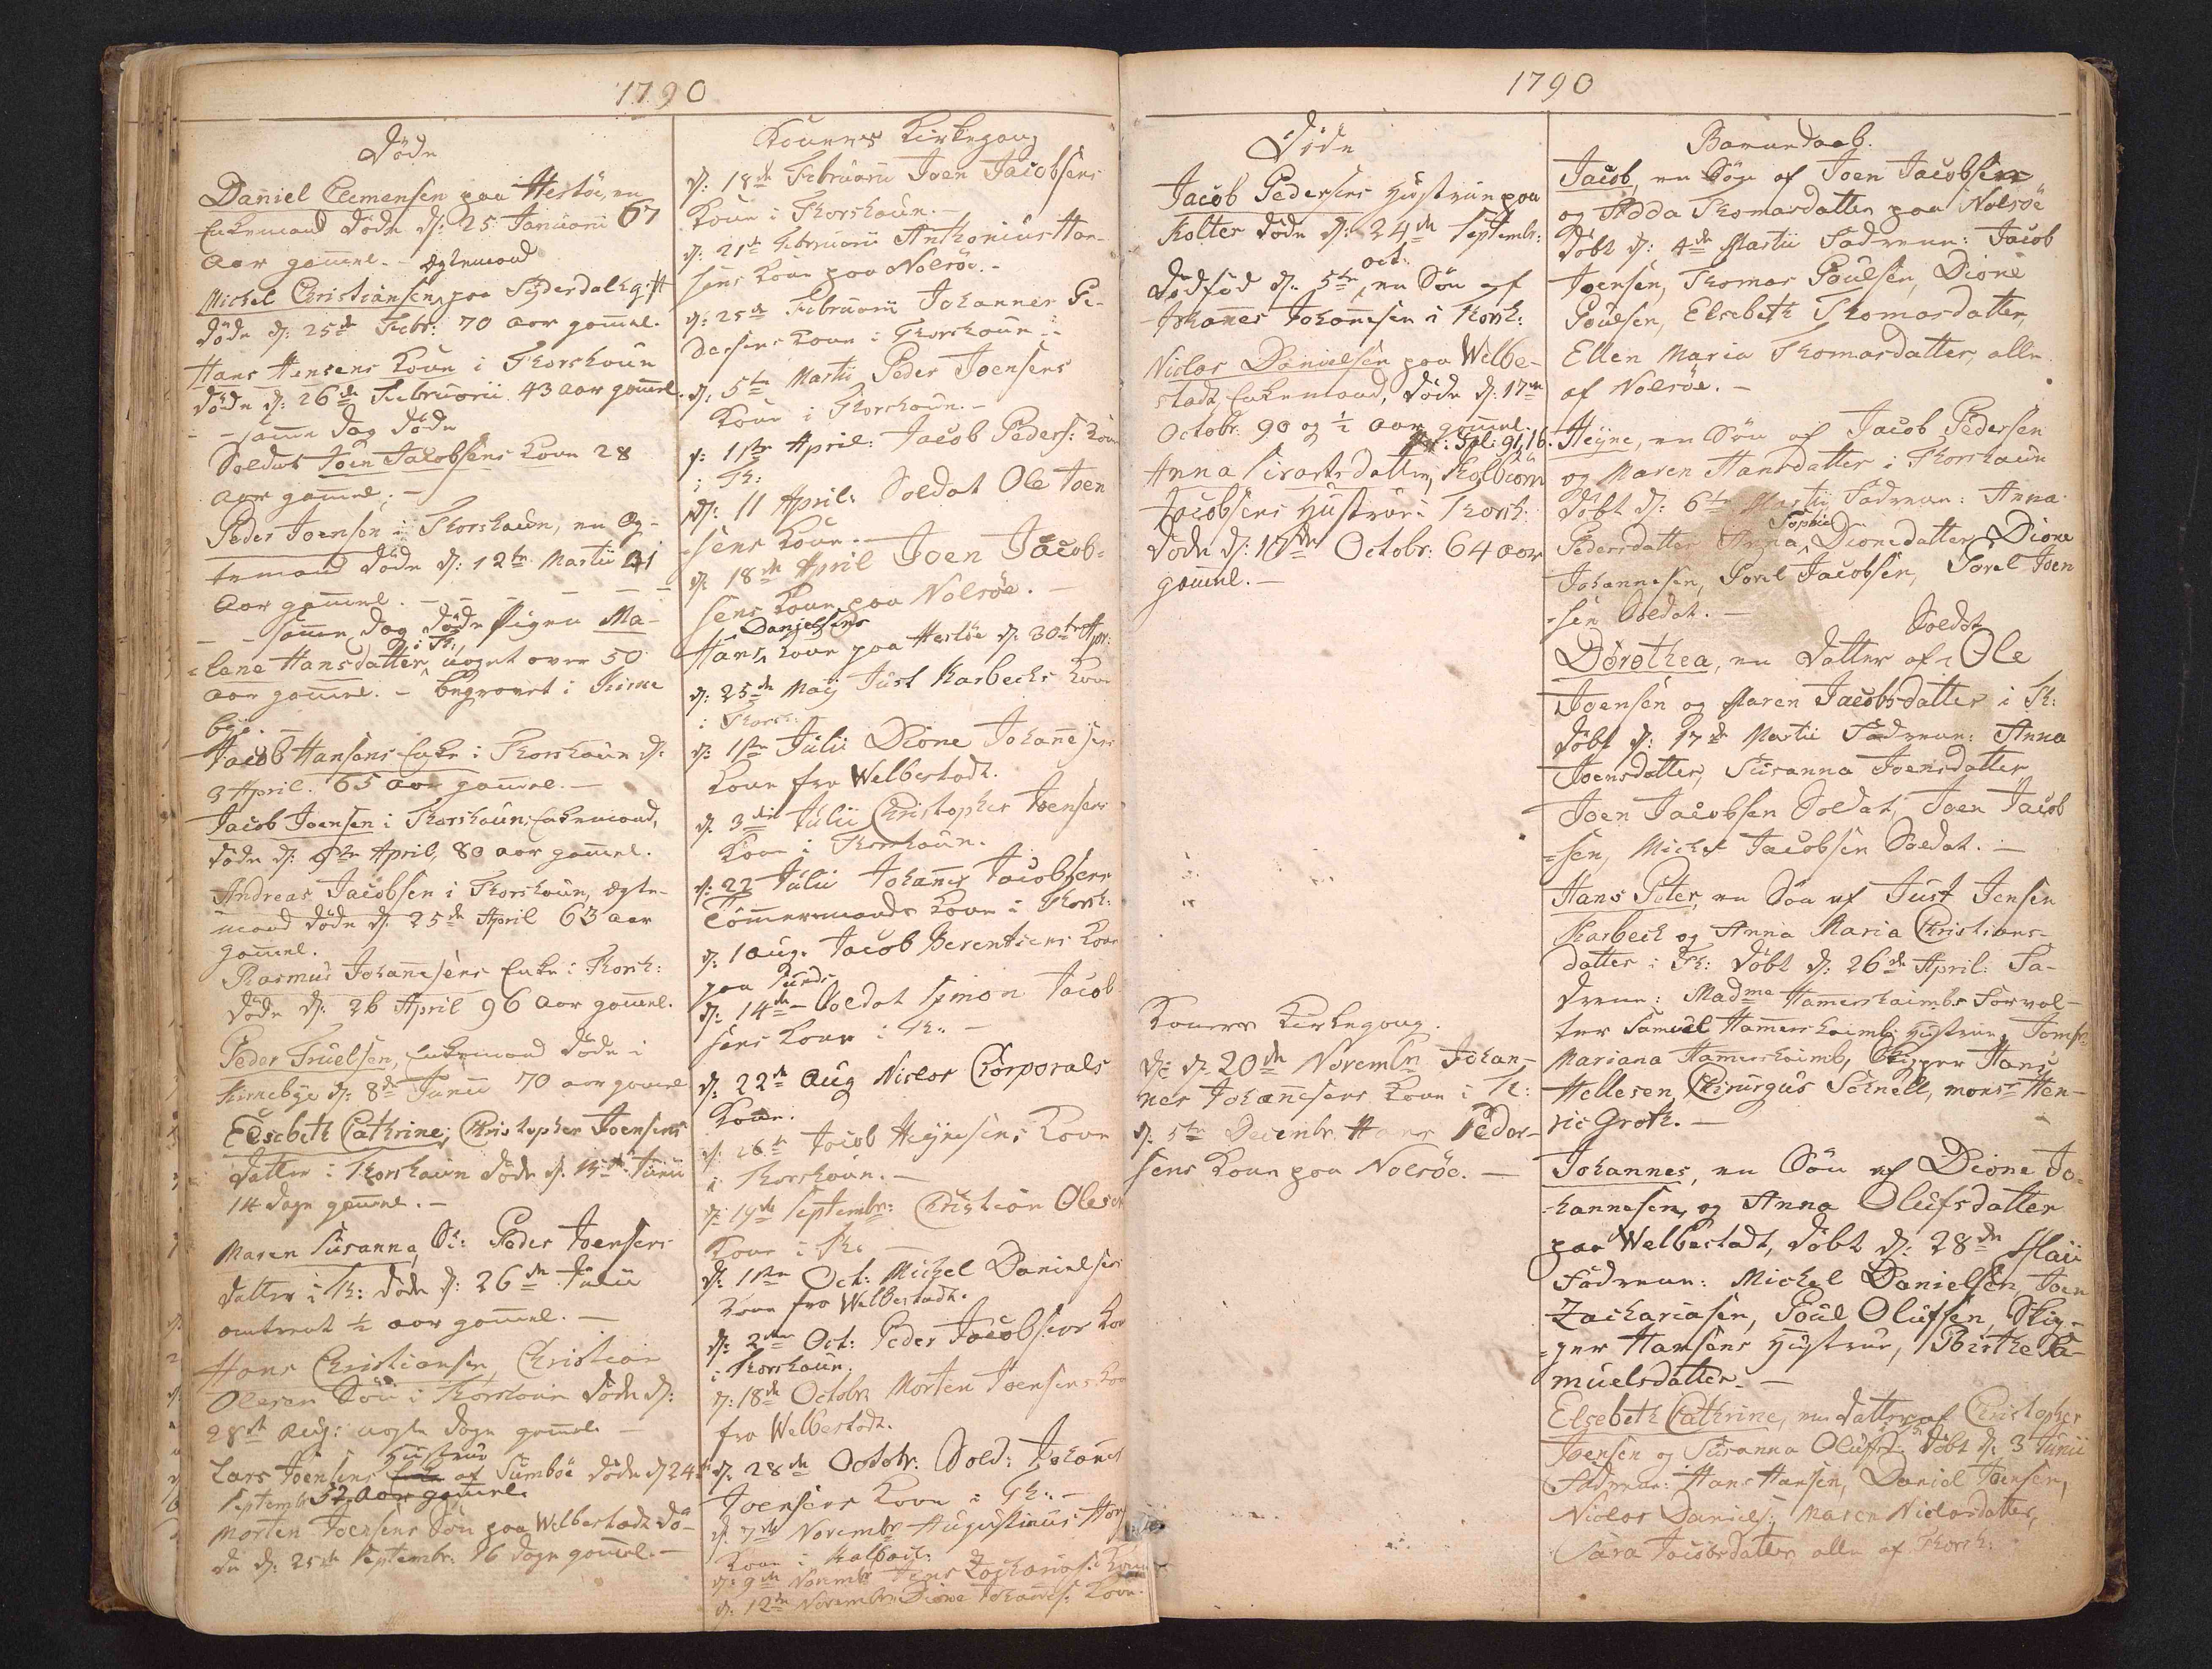 1790
Døde
Daniel Clemensen paa Hestöe, en
Enkemand døde d: 25 Januarii 67
Aar gam̄el. -
Ægtemand
Michel Christiansen, paa Syderdahl gift
døde d: 25de Febr: 70 aar gam̄el.
Hans Hensens Kone i Thorshaun
døde d: 26de Februarii 43 aar gam̄el.
- - sam̄e dag døde
Soldat Joen Jacobsens Kone 28
aar gam̄el. -
Peder Joensen i Thorshaun, en Æg-
temand døde d: 12te Martii 41
Aar gam̄el. - - - - -
- - sam̄e dag døde Pigen Ma-
i Th:
lene Hansdatter, noget over 50
aar gam̄el. - begravet i Kirke
bye. -
Jacob Hansens Enke i Thorshaun d:
3 April. 65 aar gam̄el. -
Jacob Joensen i Thorshaun, Enkemand,
døde d: 9de April, 80 aar gam̄el.
Andreas Jacobsen i Thorshaun, Ægte-
mand døde d: 25de April 63 aar
gam̄el.
Rasmus Johannesens Enke i Thorsh:
døde d: 26 April 96 aar gam̄el.
Peder Truelsen, Enkemand døde i
Kirkebye d: 8de Junii 70 aar gam̄el
Elsebeth Cathrine, Christopher Joensens
datter i Thorshaun døde d. 15de Junii
14 dage gam̄el. -
Maren Susanna, Peder Joensens
datter i Th: døde d: 26de Junii
omtrent ½ aar gam̄el. -
Hans Christiansen, Christian
Olesen Søn i Thorshaun døde d:
28de Aug: nogle dage gam̄el. -
Hustrue
Lars Joensens Enke af Sumböe døde d 24
Septembr 52 aar gam̄el.
Morten Joensens Søn paa Welbestadt dö-
de d: 25de Septembr. 16 dage gam̄el. -
Koners Kirkegang
d: 18de Februarii Joen Jacobsens
Kone i Thorshaun. -
d: 21de Februarii Anthonius Han-
sens Kone paa Nolsöe. -
d: 25de Februarii Johannes Pe-
dersens Kone i Thorshaun -
d: 5te Martii Peder Joensens
Kone i Thorshaun. -
d: 11te April: Jacob Peders: Kone
i Th:
d: 11 April: Soldat Ole Joen
sens Kone. -
d: 18de April Joen Jacob-
sens Kone paa Nolsöe. -
Danielsens
Hans, Kone paa Hestöe d: 30te Apr:
d: 25de Maij Just Karbechs Kone
i Thorsh:
d: 1ste Julii Dione Johannesens
Kone fra Welbestadt.
d. 3die Julii Christopher Joensens
Kone i Thorshaun.
d: 22 Julii Johannes Jacobsens
Töm̄ermands Kone i Thorsh:
d: 1 Aug. Jacob Berentsens Kone
paa Sund.
d: 14de - Soldat Simon Jacob
sens Kone i Th: -
d: 22de Aug Niclas Corporals
Kone.
d: 26de Jacob Heynesens Kone
i Thorshaun. -
d: 19de Septembr: Christian Olesens
Kone i Th: -
d: 1ste Oct: Michel Danielsens
Kone fra Welbestadt.
d: 2den Oct: Peder Jacobsens Kone
i Thorshaun.
d: 18de Octobr Morten Joensens Kone
fra Welbestadt.
d: 28de Octobr. Sold: Johannes
Joensens Kone i Th: -
d. 7de Novembr Augustinus Hans
Kone i Kalbach:
d: 9de Novembr Jens Zacharias: Kone
d: 12te Novembr Dione Johannes: Kone.
1790
Døde
Jacob Pedersens Hustrue paa
Kolter døde d: 24de Septembr:
oct:
Dødfød d. 5te, en Søn af
Johannes Johannesen i Thorsh:
Niclas Danielsen paa Welbe-
stadt Enkemand, døde d. 17de
Octobr. 90 og ½ aar gam̄el.
Anna Sivartsdatter, Kolbiörn
Jacobsens Hustrue i Thorsh:
døde d: 18de Octobr: 64 aar
gam̄el. -
Koners Kirkegang.
d: 20de Novembr Johan-
nes Johannesens Kone i Th:
d: 5te Decembr. Hans Peder-
sens Kone paa Nolsöe. -
Barnedaab.
Jacob, en Søn af Joen Jacobsen
og Adda Thomasdatter paa Nolsöe
døbt d: 4de Martii Fadrene: Jacob
Joensen, Thomas Poulsen, Dione
Poulsen, Elsebeth Thomasdatter,
Ellen Maria Thomasdatter, alle
af Nolsöe. -
Heyne, en Søn af Jacob Pedersen
og Maren Hansdatter i Thorshaun
døbt d: 6te Martii Fadrene: Anna
Sophie
Pedersdatter Anna, Dionedatter, Dione
Johannesen, Povel Jacobsen, Povel Joen
-sen Soldat. -
Soldat
Dorothea, en datter af Ole
Joensen og Maren Jacobsdatter i Th:
døbt d: 17de Martii Fadrene: Anna
Joensdatter, Susanna Joensdatter
Joen Jacobsen Soldat, Joen Jacob
-sen, Michel Jacobsen Soldat. -
Hans Peter, en Søn af Just Jensen
Karbech og Anna Maria Christians-
datter i Th: døbt d: 26de April: Fa-
drene: Madme Hamershaimbs Forval-
ter Samuel Hamershaimbs Hustrue, Jomfr
Mariana Hamershaimb, Skipper Hans
Hellesen, Chirurgus Schnell, monsr Hen-
ric Groth. -
Johannes, en Søn af Dione Jo-
hannesen, og Anna Olufsdatter
paa Welbestadt, døbt d: 28de Maii
Fadrene: Michel Danielsen, Joen
Zachariasen, Poul Olufsen, Skip-
per Hansens Hustrue, Birthe Sa-
muelsdatter. -
Elsebeth Cathrine, en datter af Christopher
Joensen og Susanna Olufsd: døbt d: 3 Junii
Fadrene: Hans Hansen, Daniel Joensen,
Niclas Daniels: Maren Niclasdatter,
Sara Jacobsdatter alle af Thorsh: